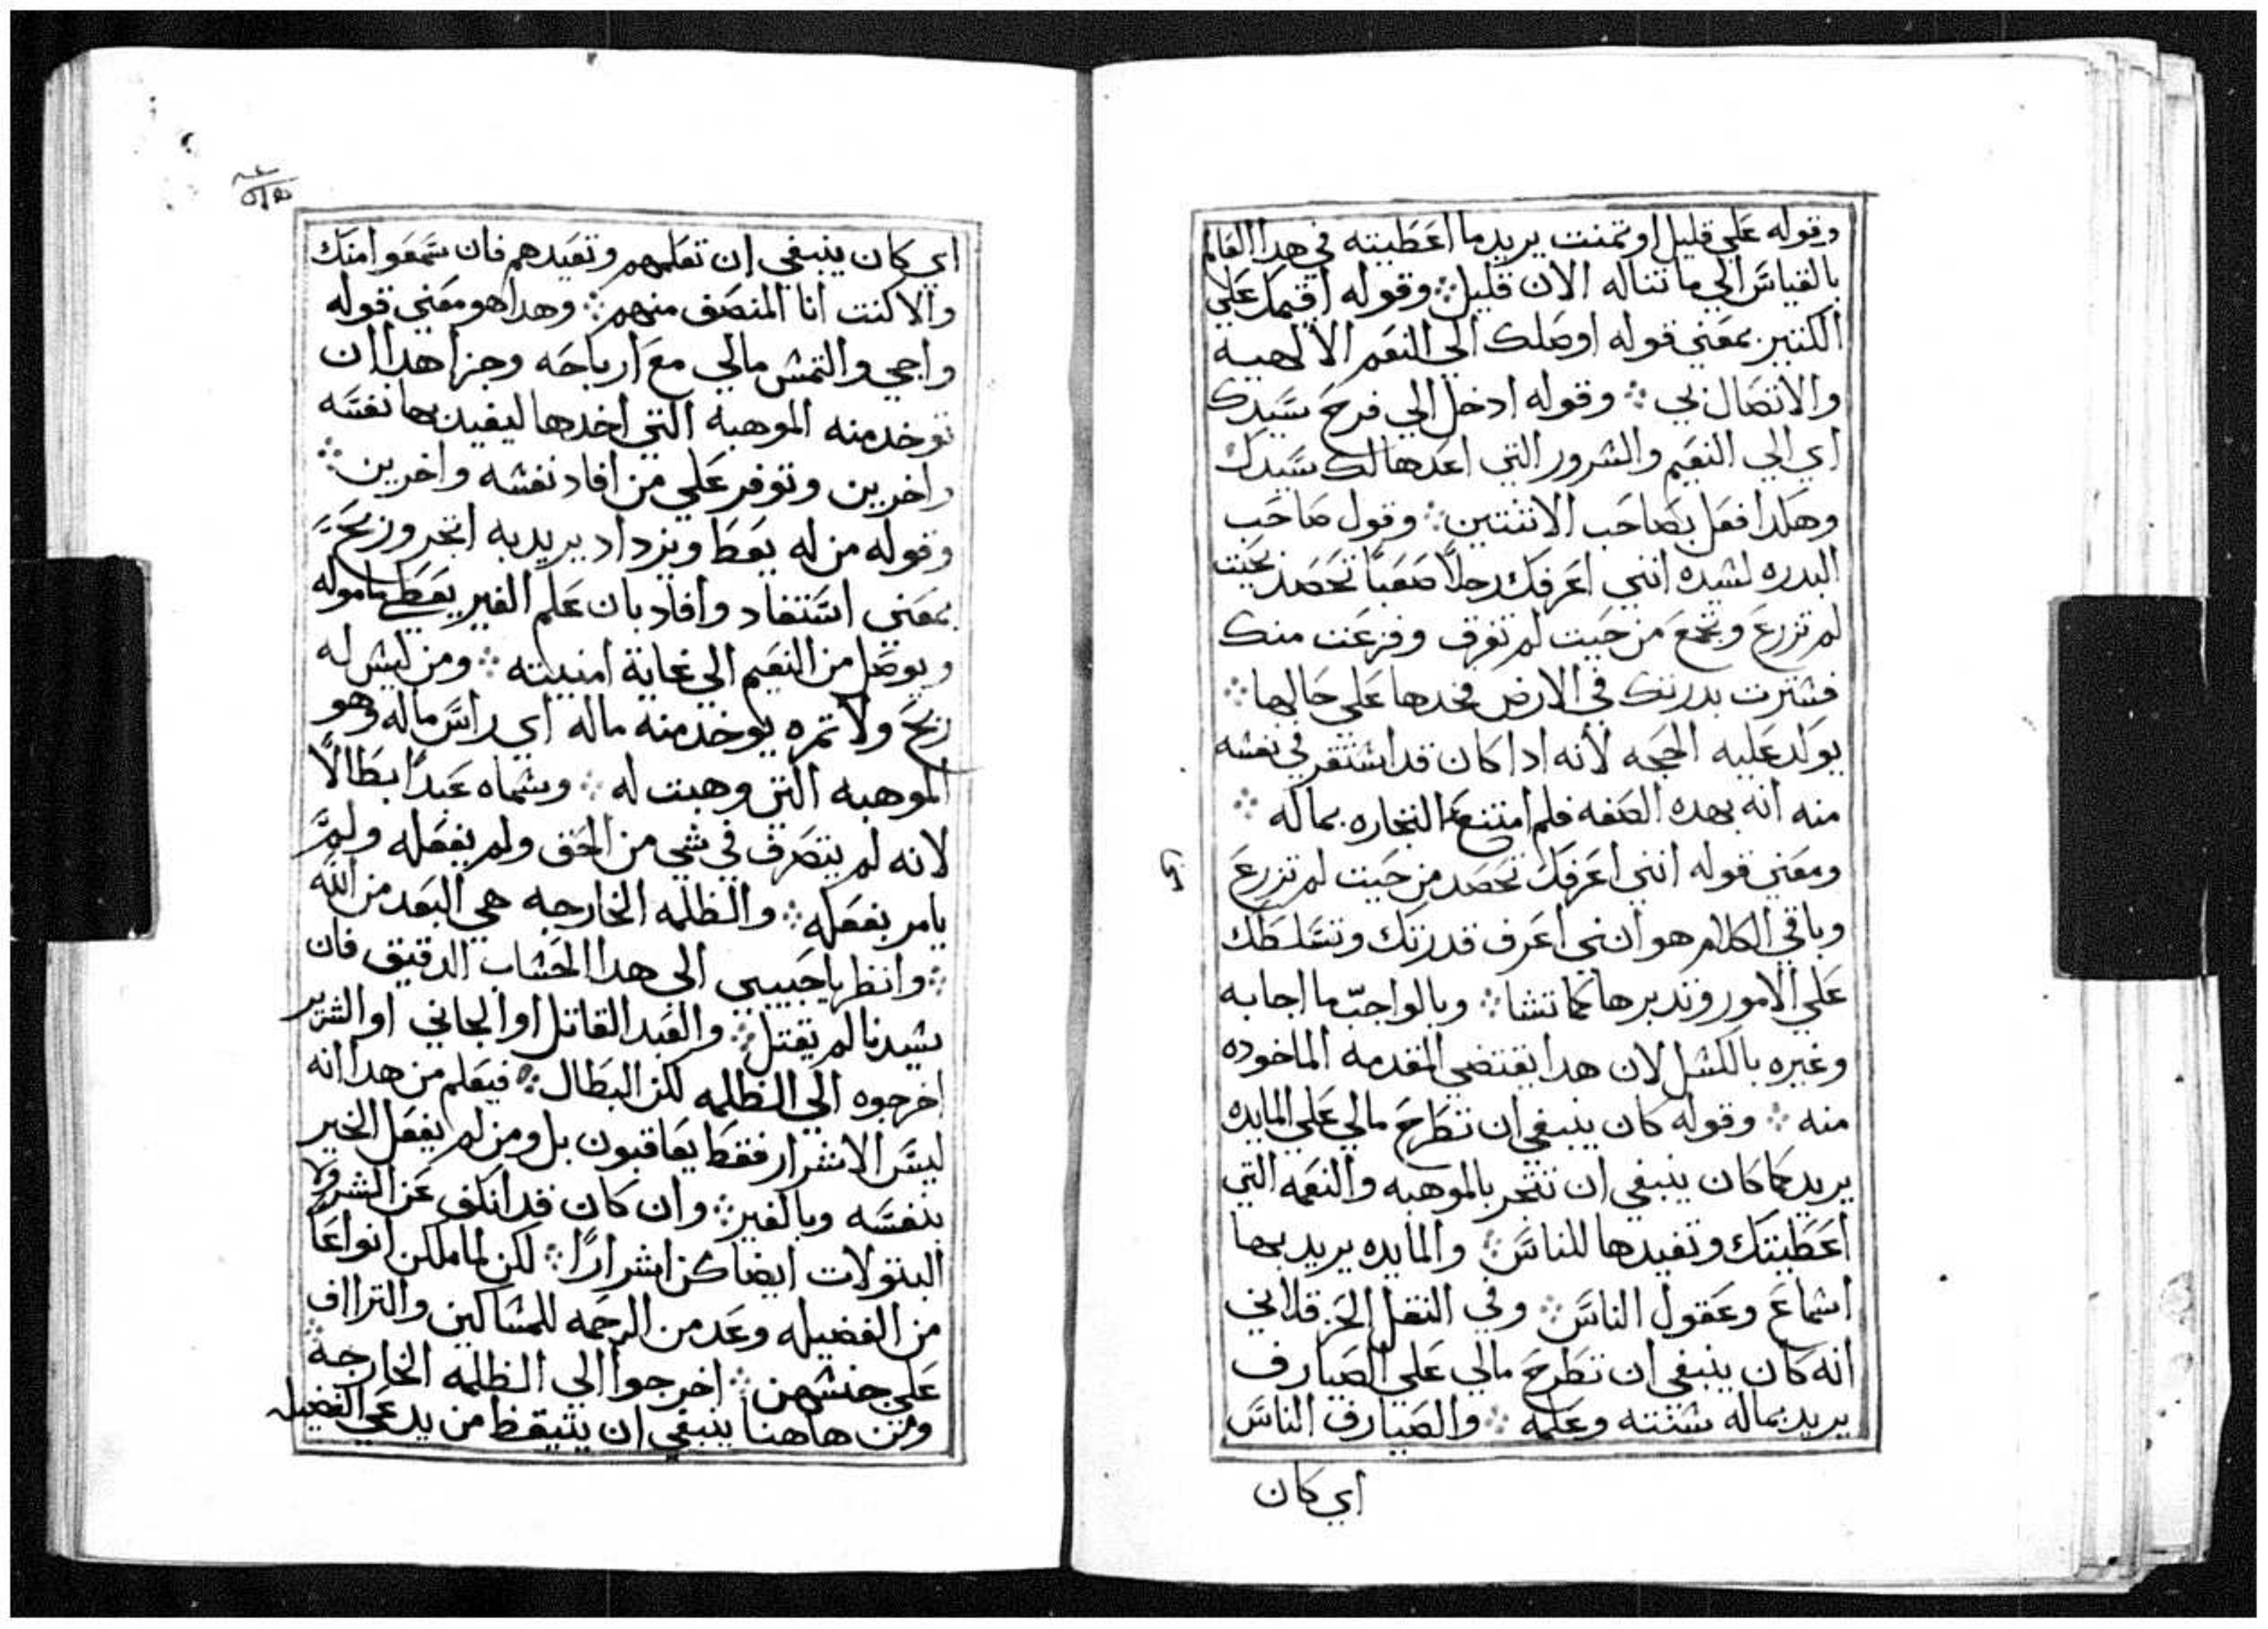 وقوله علي قليل اوتمنت يريد ما اعطيته في هدا العالم
بالقياس الي ما تناله الان قليل ⁘ وقوله اقيمك علي
الكتير بمعني قوله اوصلك الي النعم الالهية
والاتصال بي ⁘ وقوله ادخل الي فرح سيدك
اي الي النعيم والسرور التي اعدها لك سيدك
وهكدا فعل بصاحب الاتنتين ⁘ وقول صاحب
البدره لسيده انني اعرفك رجلاً صعباً تحصد بحيت
لم تزرع وتجمع من حيت لم تفرق وفزعت منك
فسترت بدرتك في الارض فخدها علي حالها ⁘
يولد عليه الحجه لأنه ادا كان قد استقر في نفسه
منه انه بهده الصفه فلم امتنع التجاره بماله ⁘
ومعني قوله انني اعرفك تحصد من حيت لم تزرع
وباقي الكلام هو انني اعرف قدرتك وتسلطك
علي الامور وتدبرها كما تشا ⁘ وبالواجب ما اجابه
وغيره بالكسل لان هدا يقتضي المقدمه الماخوده
منه ⁘ وقوله كان ينبغي ان تطرح مالي علي المايده
يريد كما كان ينبغي ان تتجر بالموهبه والنعمه التي
اعطيتك وتفيدها للناس ⁘ والمايده يريد بها
اسماع وعقول الناس ⁘ وفي النقل الحرقلاني
انه كان ينبغي ان تطرح مالي علي الصيارف
يريد بماله سنته وعلمه ⁘ والصيارف الناس
اي كان
اي كان ينبغي ان تعلمهم وتفيدهم فان سمعوا منك
والا كنت انا المنصف منهم ⁘ وهدا هو معني قوله
واجي والتمس مالي مع ارباحه وجزا هدا ان
توخد منه الموهبه التي اخدها ليفيد بها نفسه
واخرين وتوفر علي من افاد نفسه واخرين ⁘
وقوله من له يعط ويزداد يريد به اتجر وربح
بمعني استفاد وافاد بان علم الغير يعطي ماموله
ويوصل من النعيم الي غاية امنيته ⁘ ومن ليس له
ربح ولا تمره يوخد منه ماله اي راس ماله وهو
الموهبه التي وهبت له ⁘ وسماه عبداً بطالاً
لانه لم يتصرف في شي من الحق ولم يفعله ولم
يامر بفعله ⁘ والظلمه الخارجه هي البعد من الله
⁘ وانظر يا حبيبي الي هدا الحساب الدقيق فان
سيدنا لم يقتل ⁘ والعبد القاتل او الجاني او الشرير
اخرجوه الي الظلمه لكن البطال ⁘ فيعلم من هدا انه
ليس الاشرار فقط يعاقبون بل ومن لم يفعل الخير
بنفسه وبالغير ⁘ وان كان قد انكف عن الشر ولا
البتولات ايضا كن اشراراً ⁘ لكن لما ملكن انواعاً
من الفضيله وعدمن الرحمه للمساكين والتراأف
علي جنسهن ⁘ اخرجوا الي الظلمه الخارجه ⁘
ومن هاهنا ينبغي ان يتيقظ من يدعي الفضيله